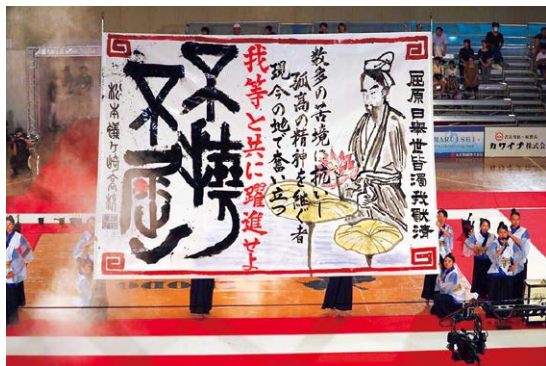 屈原曰舉世皆濁我獨清
数多の苦境に抗いし
孤高の精神を継ぐ者
現今の地で奮い立つ
我等と共に躍進せよ
不撓
不屈
松本蟻ヶ崎高校
MARUISHI